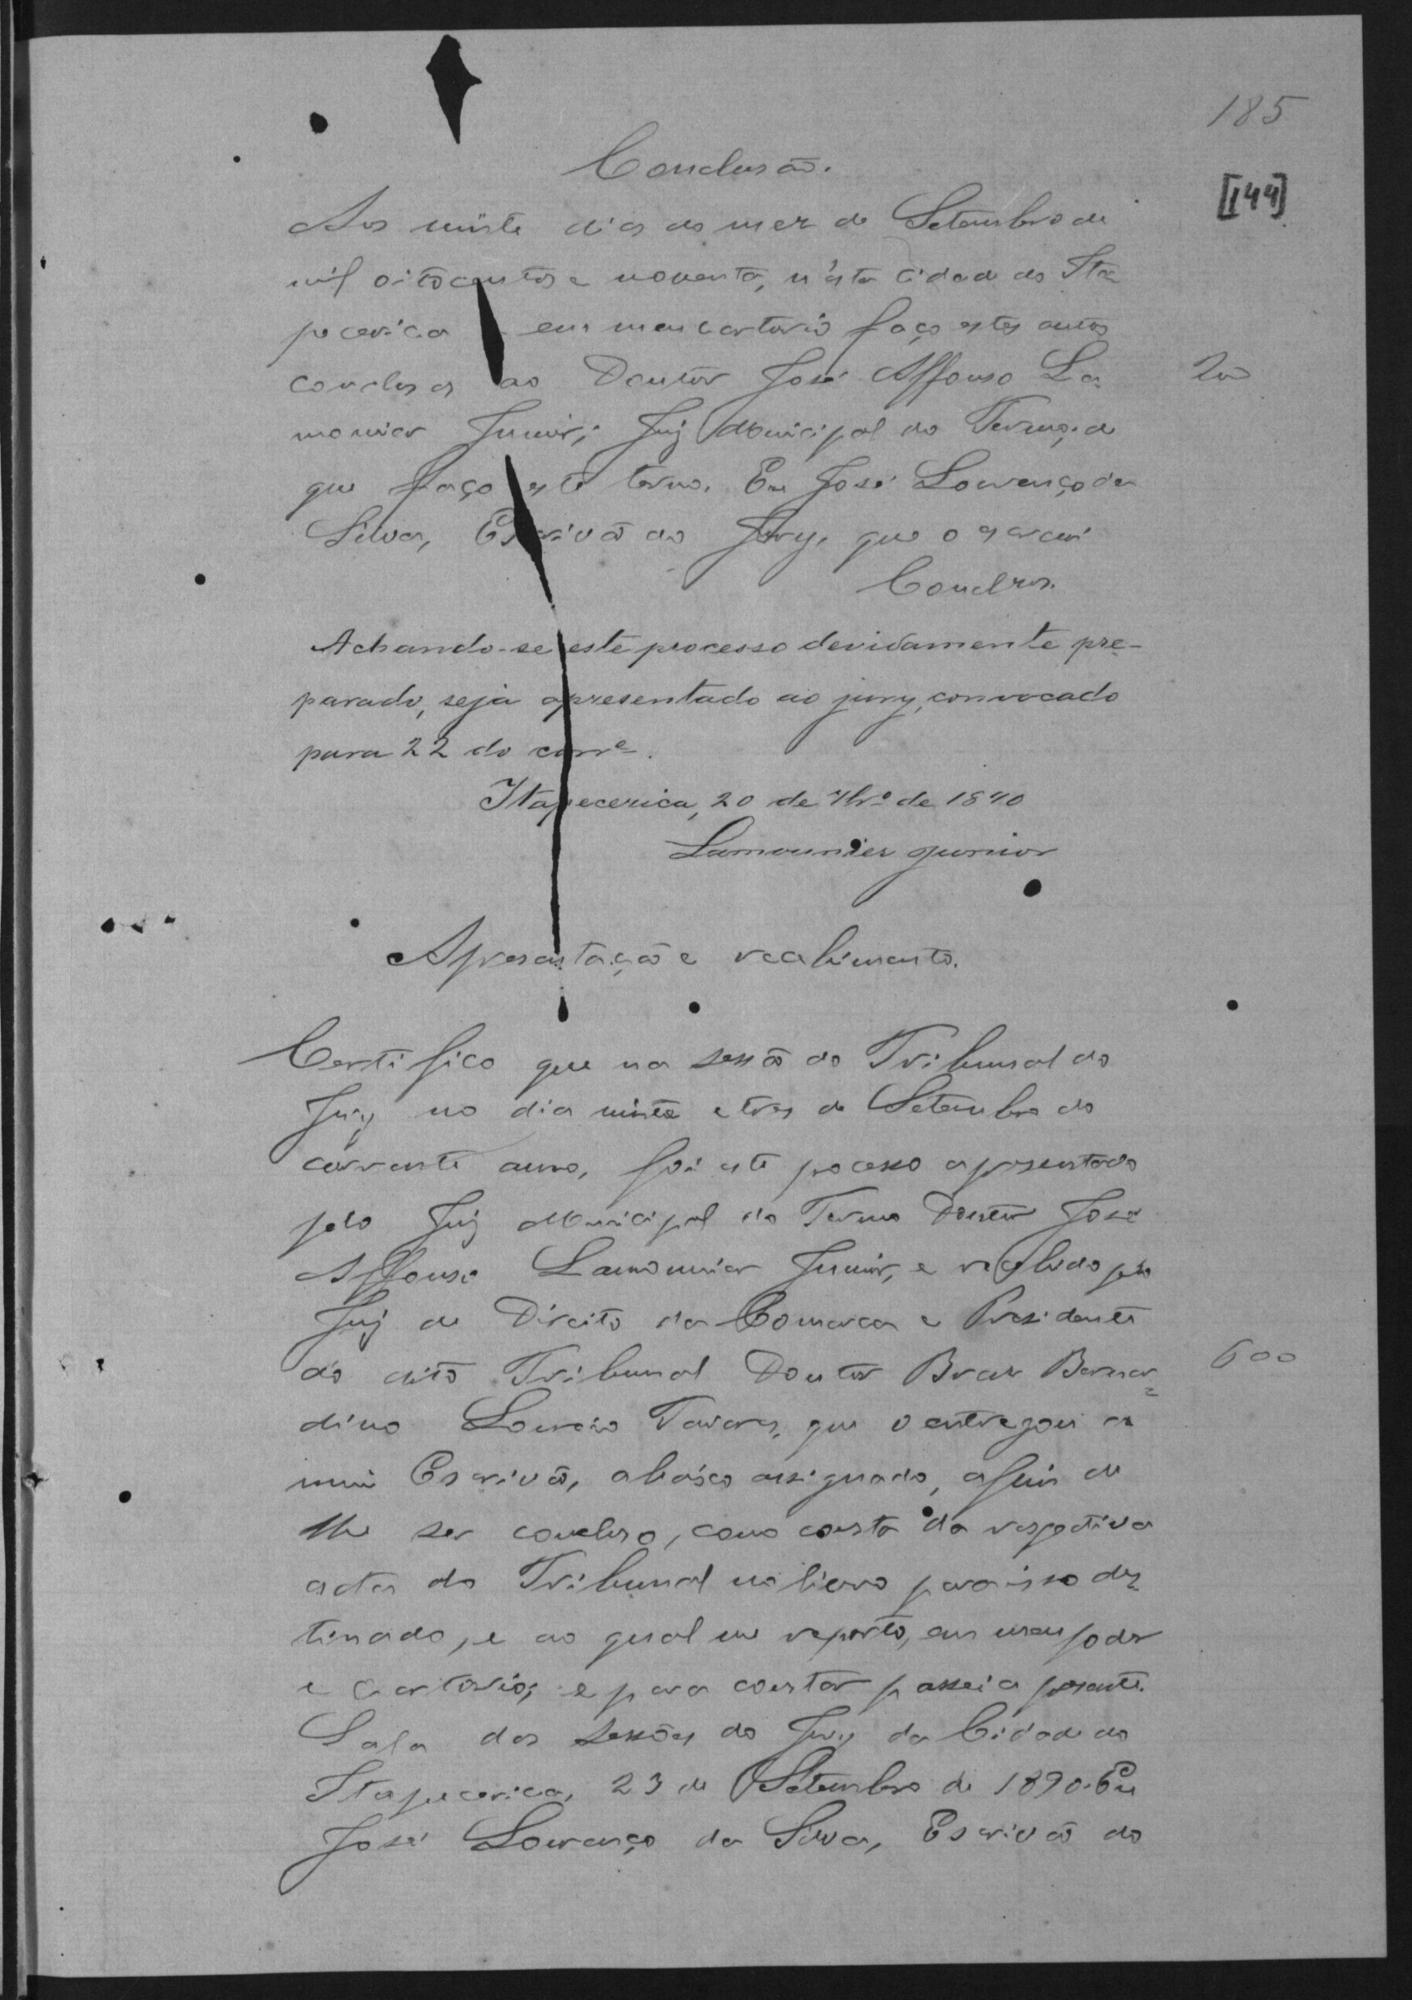 185
[144]
Conclusão.
Aos vinte dias do mez de Setembro de
mil oitocentos e noventa, n'esta Cidade do Ita
pecerica em meu cartorio faço estes autos
conclusos ao Doutor José Affonso La
mounier Junior, Juiz Municipal do Termo, do
que faço este termo. Eu José Lourenço da
Silva, Escrivão do Jury, que o escrevi
Conclsos.
200
Achando-se este processo devidamente pre-
parado, seja apresentado ao jury, convocado
para 22 do corre.
Itapecerica, 20 de 7bro de 1890
Lamounier Junior
Apresentação e recebimento.
Certifico que na sessão do Tribunal do
Jury no dia vinte e tres de Setembro do
corrente anno, foi este processo apresentado
pelo Juiz Municipal do Termo Doutor José
Affonso Lamounier Junior, e recebido pelo
Juiz de Direito da Comarca e Presidente
do dito Tribunal Doutor Braz Bernar=
dino Loureiro Tavares, que o entregou a
mim Escrivão, abaixo assignado, afim de
lhe ser concluso, como consta da respectiva
acta do Tribunal no livro para isso des
tinado, e ao qual me reporto, em meu poder
e cartorio; e para constar passei a presente.
Sala das Sessões do Jury da Cidade do
Itapecerica, 23 de Setembro de 1890. Eu
José Lourenço da Silva, Escrivão do
600